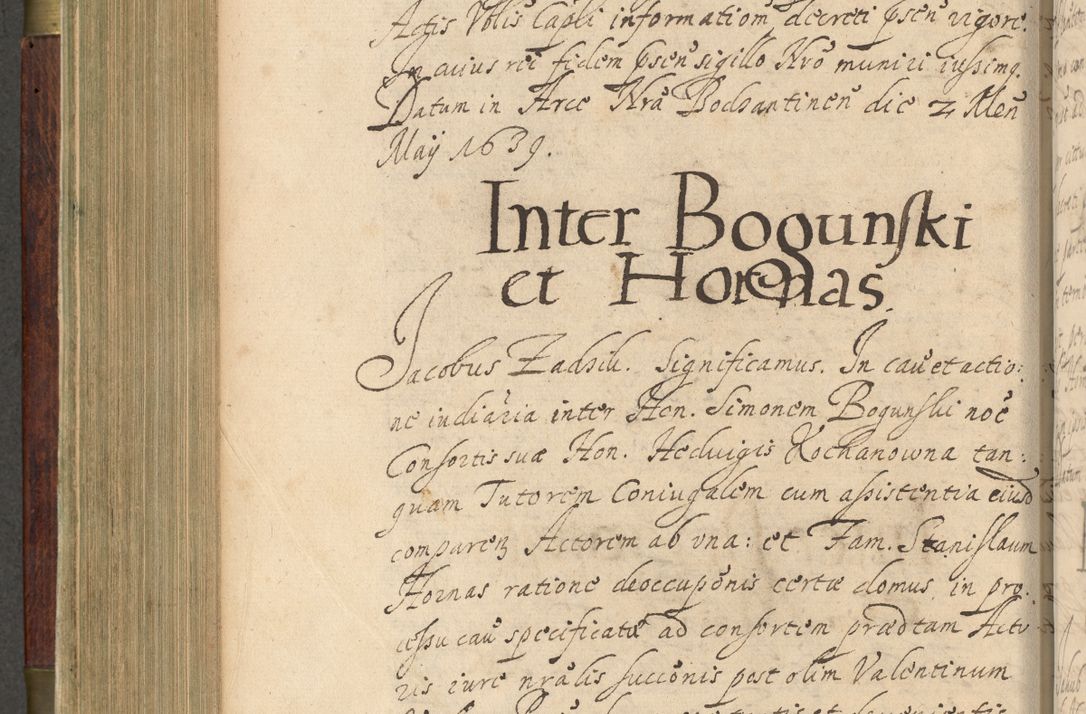 Actis Vris Capli informatiom decreti psen vigore.
In cuius rei fidem psen sigillo Nro muniri iussimq.
Datum in Arce Nra Bodzantinen die 2 Men
Maÿ 1639.
Inter Bogunski
et Hornas.
Jacobus Zadzik. Significamus. In cau et actio:
ne iudiaria inter Hon. Simonem Bogunski noe
Consortis suæ Hon. Hedvigis Kochanowna tan:
quam Tutorem Coniugalem cum assistentia eiusd
comparen Actorem ab vna: et Fam. Stanislaum
Hornas ratione deoccuponis certæ domus in pro:
cessu cau specificatæ ad consortem prædtam Acto
ris iure nralis succonis post olim Valentinum